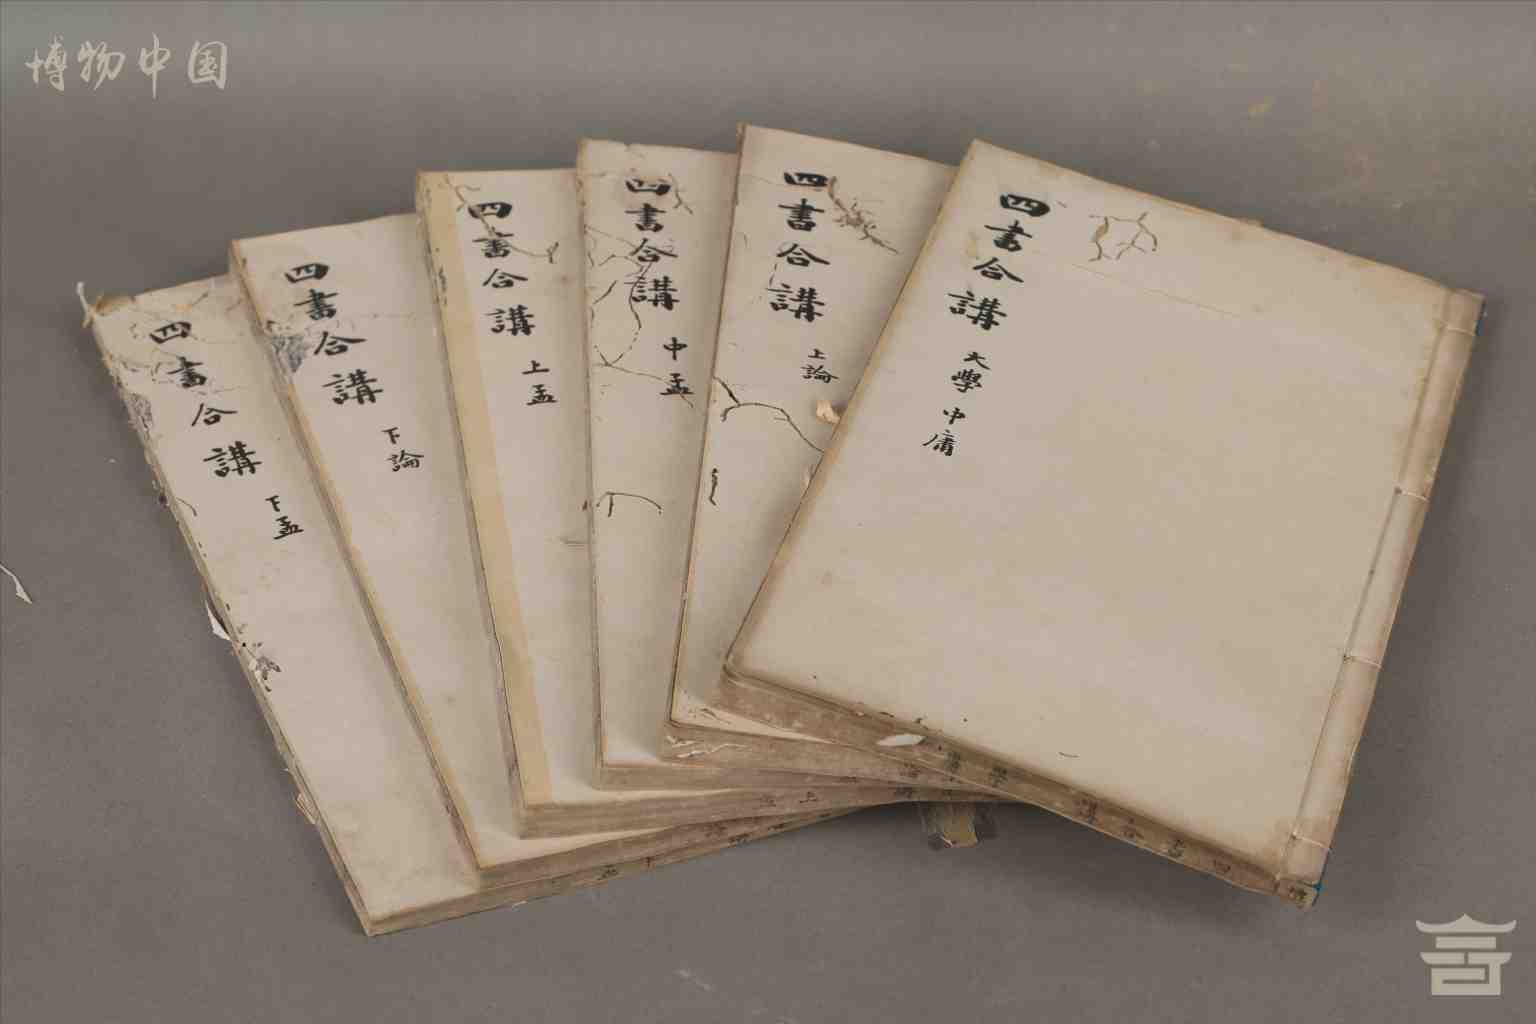 博物中国
四書合講
大學 中庸
四書合講
上論
四書合講
中孟
四書合講
上孟
四書合講
下論
四書合講
下孟